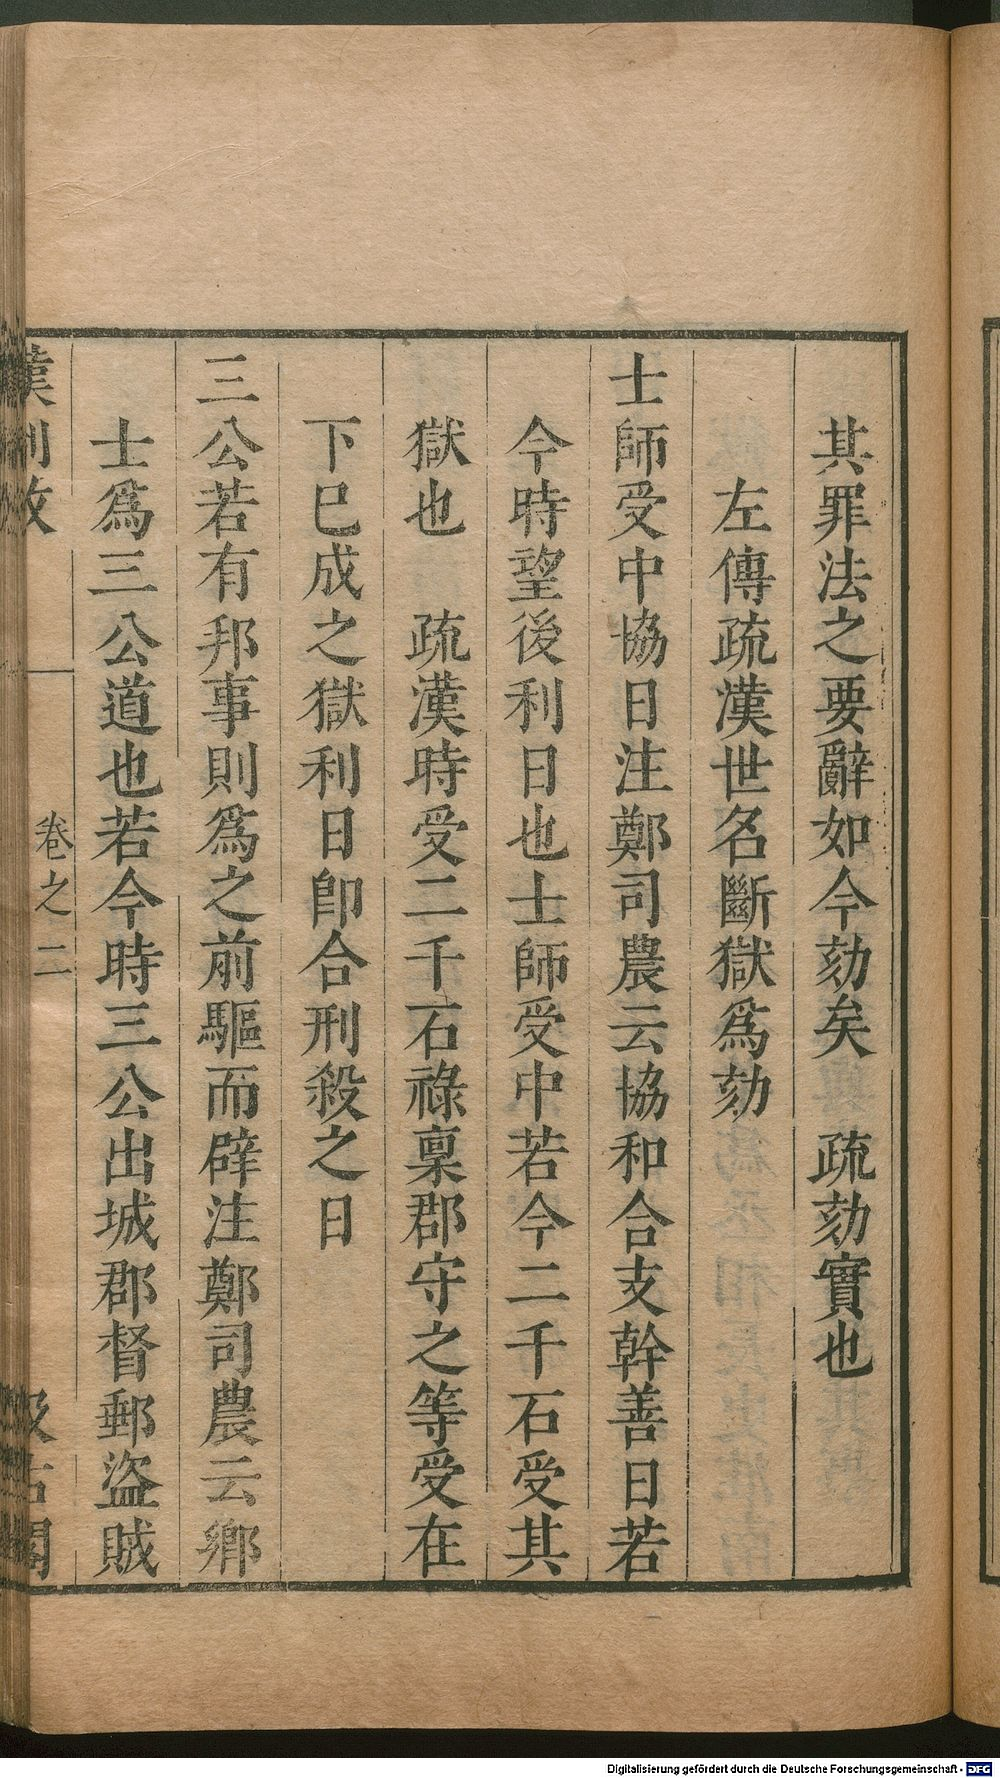 其罪法之要辭如今劾矣　疏劾實也
左傳疏漢世名斷獄爲劾
士師受中協日注鄭司農云協和合支幹善日若
今時望後利日也士師受中若今二千石受其
獄也　疏漢時受二千石祿稟郡守之等受在
下巳成之獄利日卽合刑殺之日
三公若有邦事則爲之前驅而辟注鄭司農云鄉
士爲三公道也若今時三公出城郡督郵盜賊
漢制攷
卷之二
汲古閣
Digitalisierung gefördert durch die Deutsche Forschungsgemeinschaft - DFG